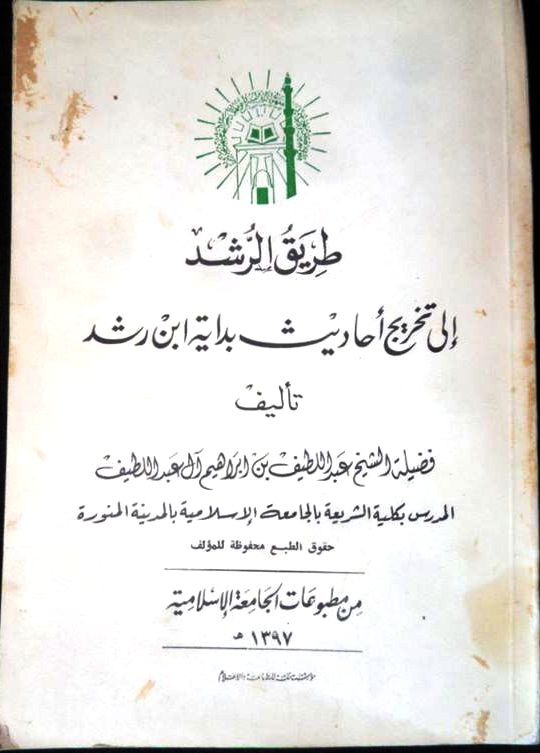 طَرِيقُ الرُّشْد
إلى تخريج أحاديث بداية ابن رشد
تأليف
فضيلة الشيخ عبد اللطيف بن ابراهيم آل عبد اللطيف
المدرس بكلية الشريعة بالجامعة الإسلامية بالمدينة المنورة
حقوق الطبع محفوظة للمؤلف
مِن مطبوعات الجامعة الإسلامية
١٣٩٧ هـ
مؤسسة مكة للطباعة والإعلام